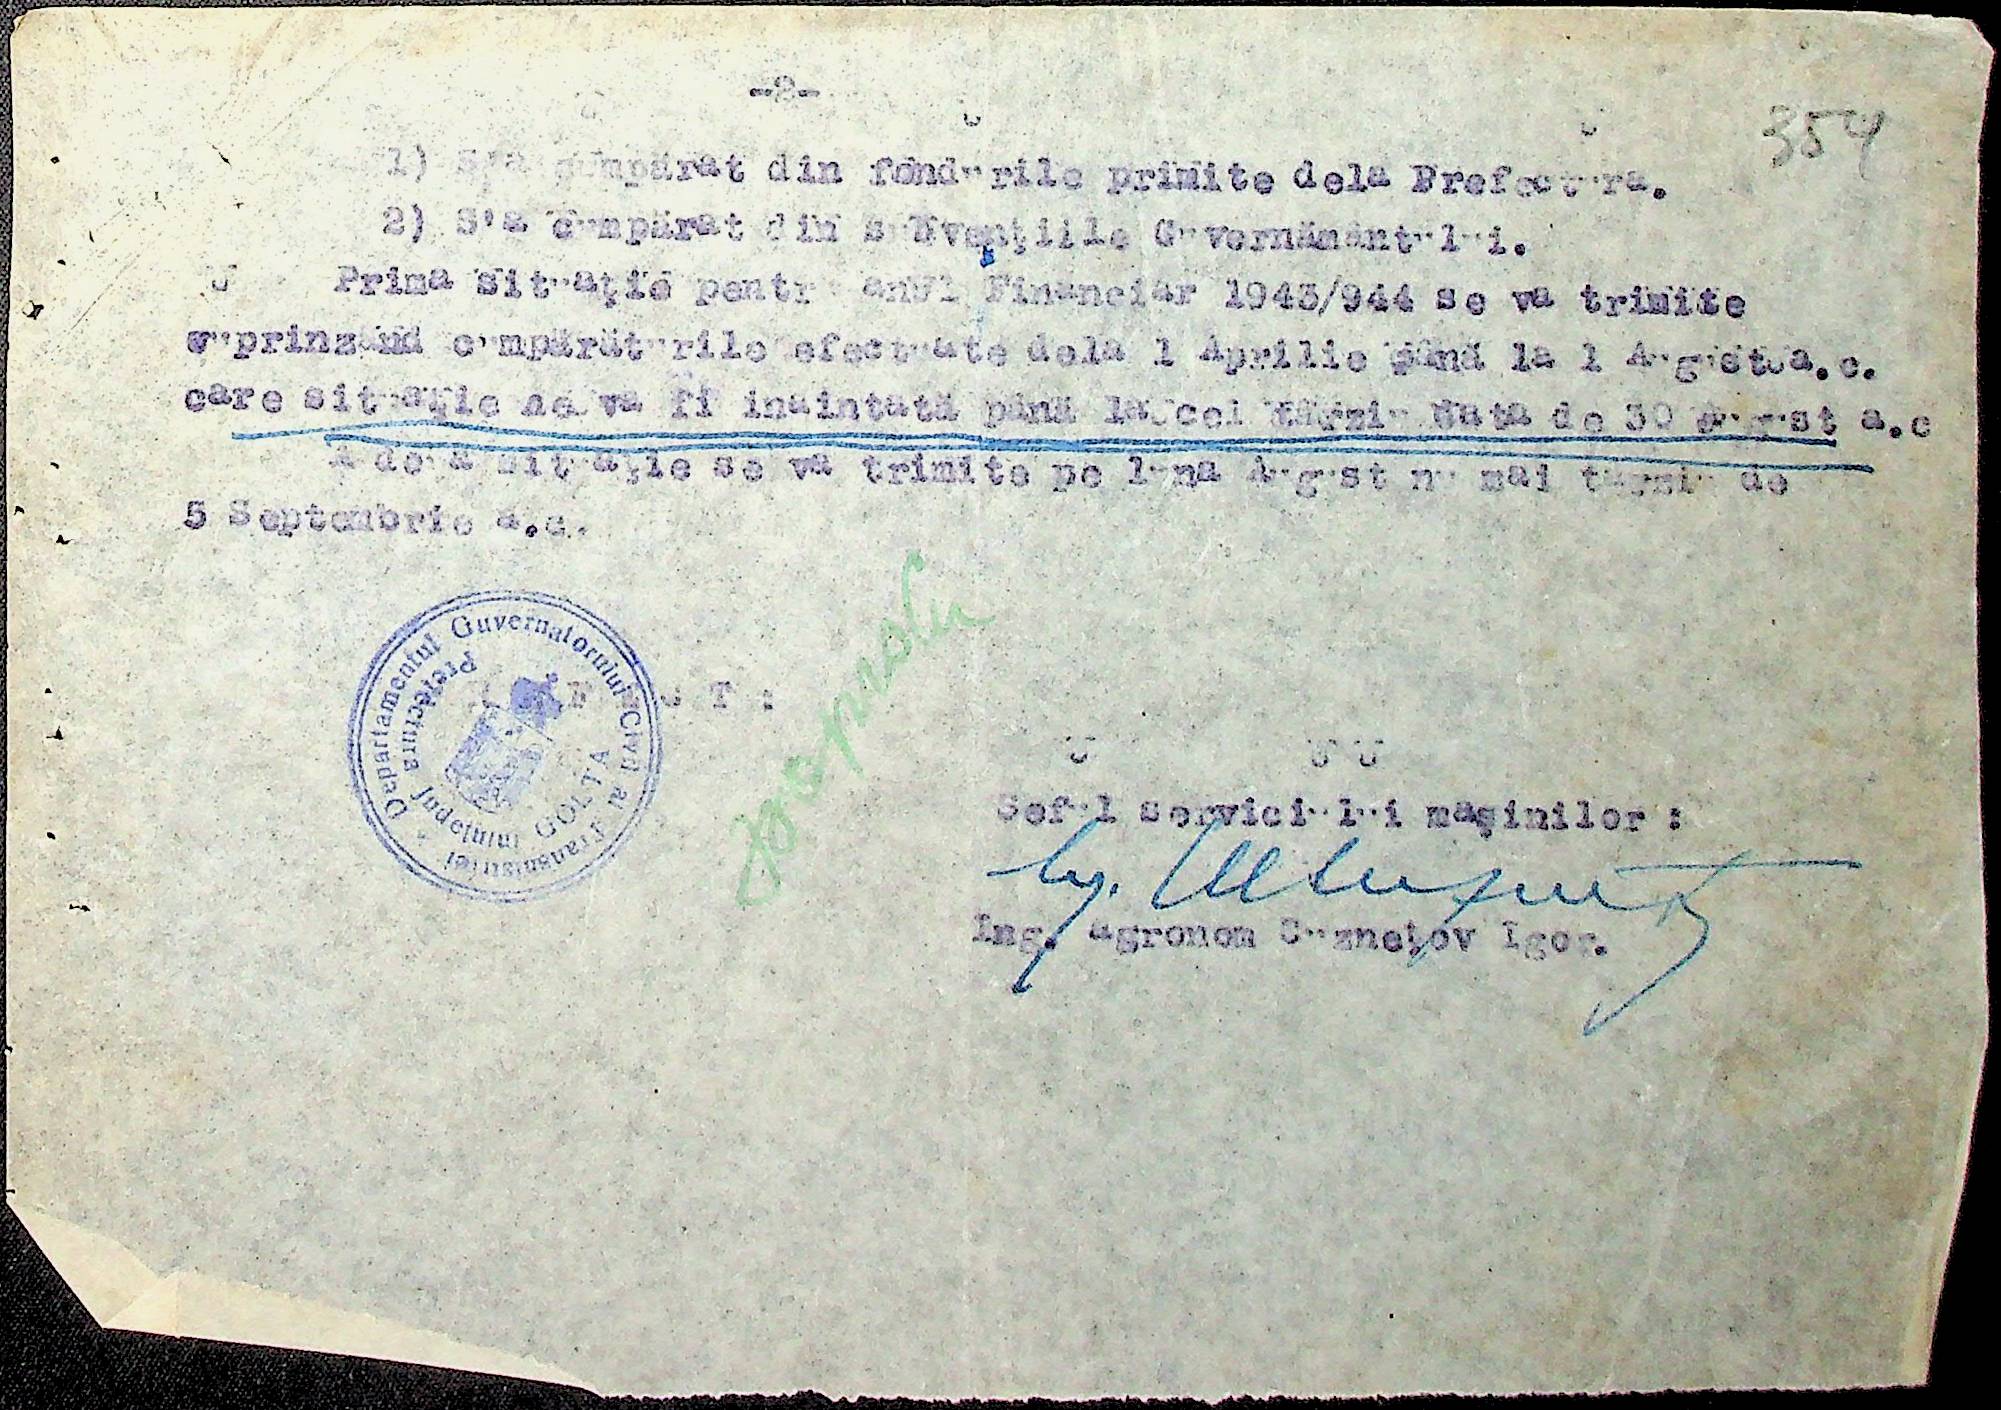 -2-
354
1) S'a cumpărat din fondurile primite dela Prefectura.
2) S'a cumpărat din subvenţiile Guvernământului.
Prima situaţie pentru anul Financiar 1943/944 se va trimite
cuprinzând cumpărăturile efectuate dela 1 Aprilie până la 1 August a.c.
care situaţie ne va fi inaintată până la cel târziu data de 30 August a.c
A doua situaţie se va trimite pe luna August nu mai târziu de
5 Septembrie a.c.
Departamentul Guvernatorului Civil al Transnistriei
Prefectura Judeţului GOLTA
PREFECT:
Seful serviciului maşinilor:
Ing.
Ing. agronom Cuzneţov Igor.